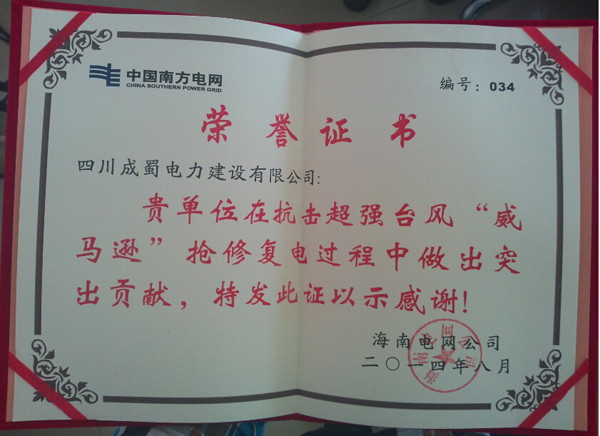 中国南方电网
CHINA SOUTHERN POWER GRID
编号：034
荣誉证书
四川成蜀电力建设有限公司：
贵单位在抗击超强台风“威
马逊”抢修复电过程中做出突
出贡献，特发此证以示感谢！
海南电网公司
二〇一四年八月